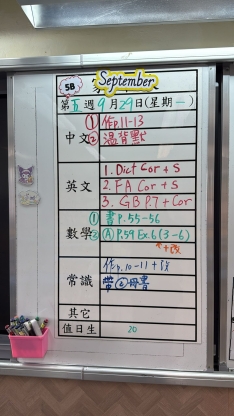 5B
September
第五週9月29日(星期一)
中文
①作p.11-13
②溫背默
英文
1. Dict Cor + S
2. FA Cor + S
3. GB P.7 + Cor
數學
①書P.55-56
②Ⓐ P.59 Ex.6 (3-6)
+改
常識
作p.10-11+改
帶②冊書
其它
值日生
20